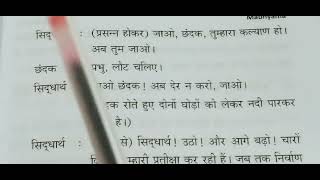 Madhyama
सिद् : (प्रसन्न होकर) जाओ, छंदक, तुम्हारा कल्याण हो।
अब तुम जाओ।
छंदक प्रभु, लौट चलिए।
सिद्धार्थ ओ छंदक! अब देर न करो, जाओ।
दक रोते हुए दोनों घोड़ों को लेकर नदी पारकर
है।)
सिद्धार्थ : से) सिद्धार्थ! उठो! और आगे बढ़ो! चारों
म्हारी प्रतीक्षा कर रही हैं। जब तक निर्वाण